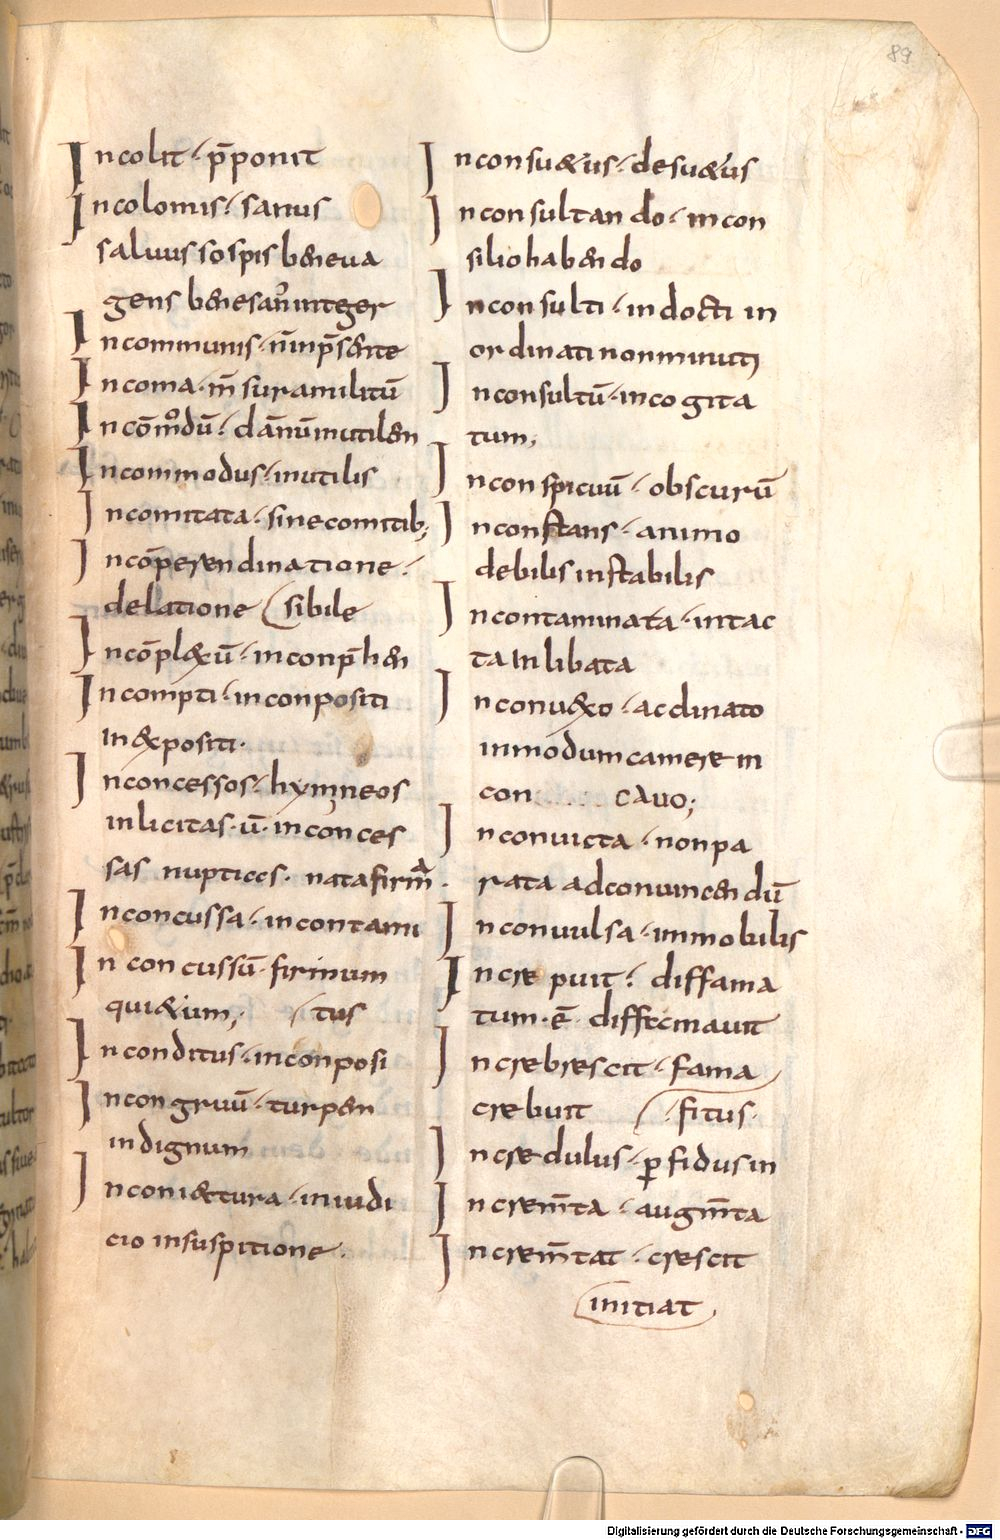 89
Incolit · p̄ponit
Incolomis · sanus
salvus sospis beneva
gens bene san᷒ integer
Incommunis · n̄ inp̄sente
Incoma · m̄sura militū
Incōmodū · dānū inutilem
Incommodus · inutilis
Incomitata · sine comitib;
Incōperendinatione ·
delatione sibile
Incōplexū · inconp̄hen
Incompti · inconpositi
inexpositi ·
Inconcessos · hymneos
inlicitas · ū · inconces
sas nuptices · nata firmā ·
Inconcussa · incontami
Inconcussū · firmum
quietum; tus
Inconditus · inconposi
Incongruū · turpem
indignum
Inconiectura · in iudi
cio in suspitione ·
Inconsuetus · desuetus
Inconsultando · in con
silio habendo
Inconsulti · indocti in
ordinati non minuti
Inconsultū · incogita
tum;
Inconspicuū · obscurū
Inconstans · animo
debilis instabilis
Incontaminata · intac
ta inlibata
Inconuexo · acclinato
in modum camere in
con cavo;
Inconvicta · non pa
rata ad convincendū
Inconvulsa · immobilis
Increpuit · diffama
tum · ē diffamavit
Increbrescit · fama
crebuit fitus ·
Incredulus · ꝑfidus in
Increm̄ta · augm̄ta
Increm̄tat · crescit
initiat
Digitalisierung gefördert durch die Deutsche Forschungsgemeinschaft - DFG